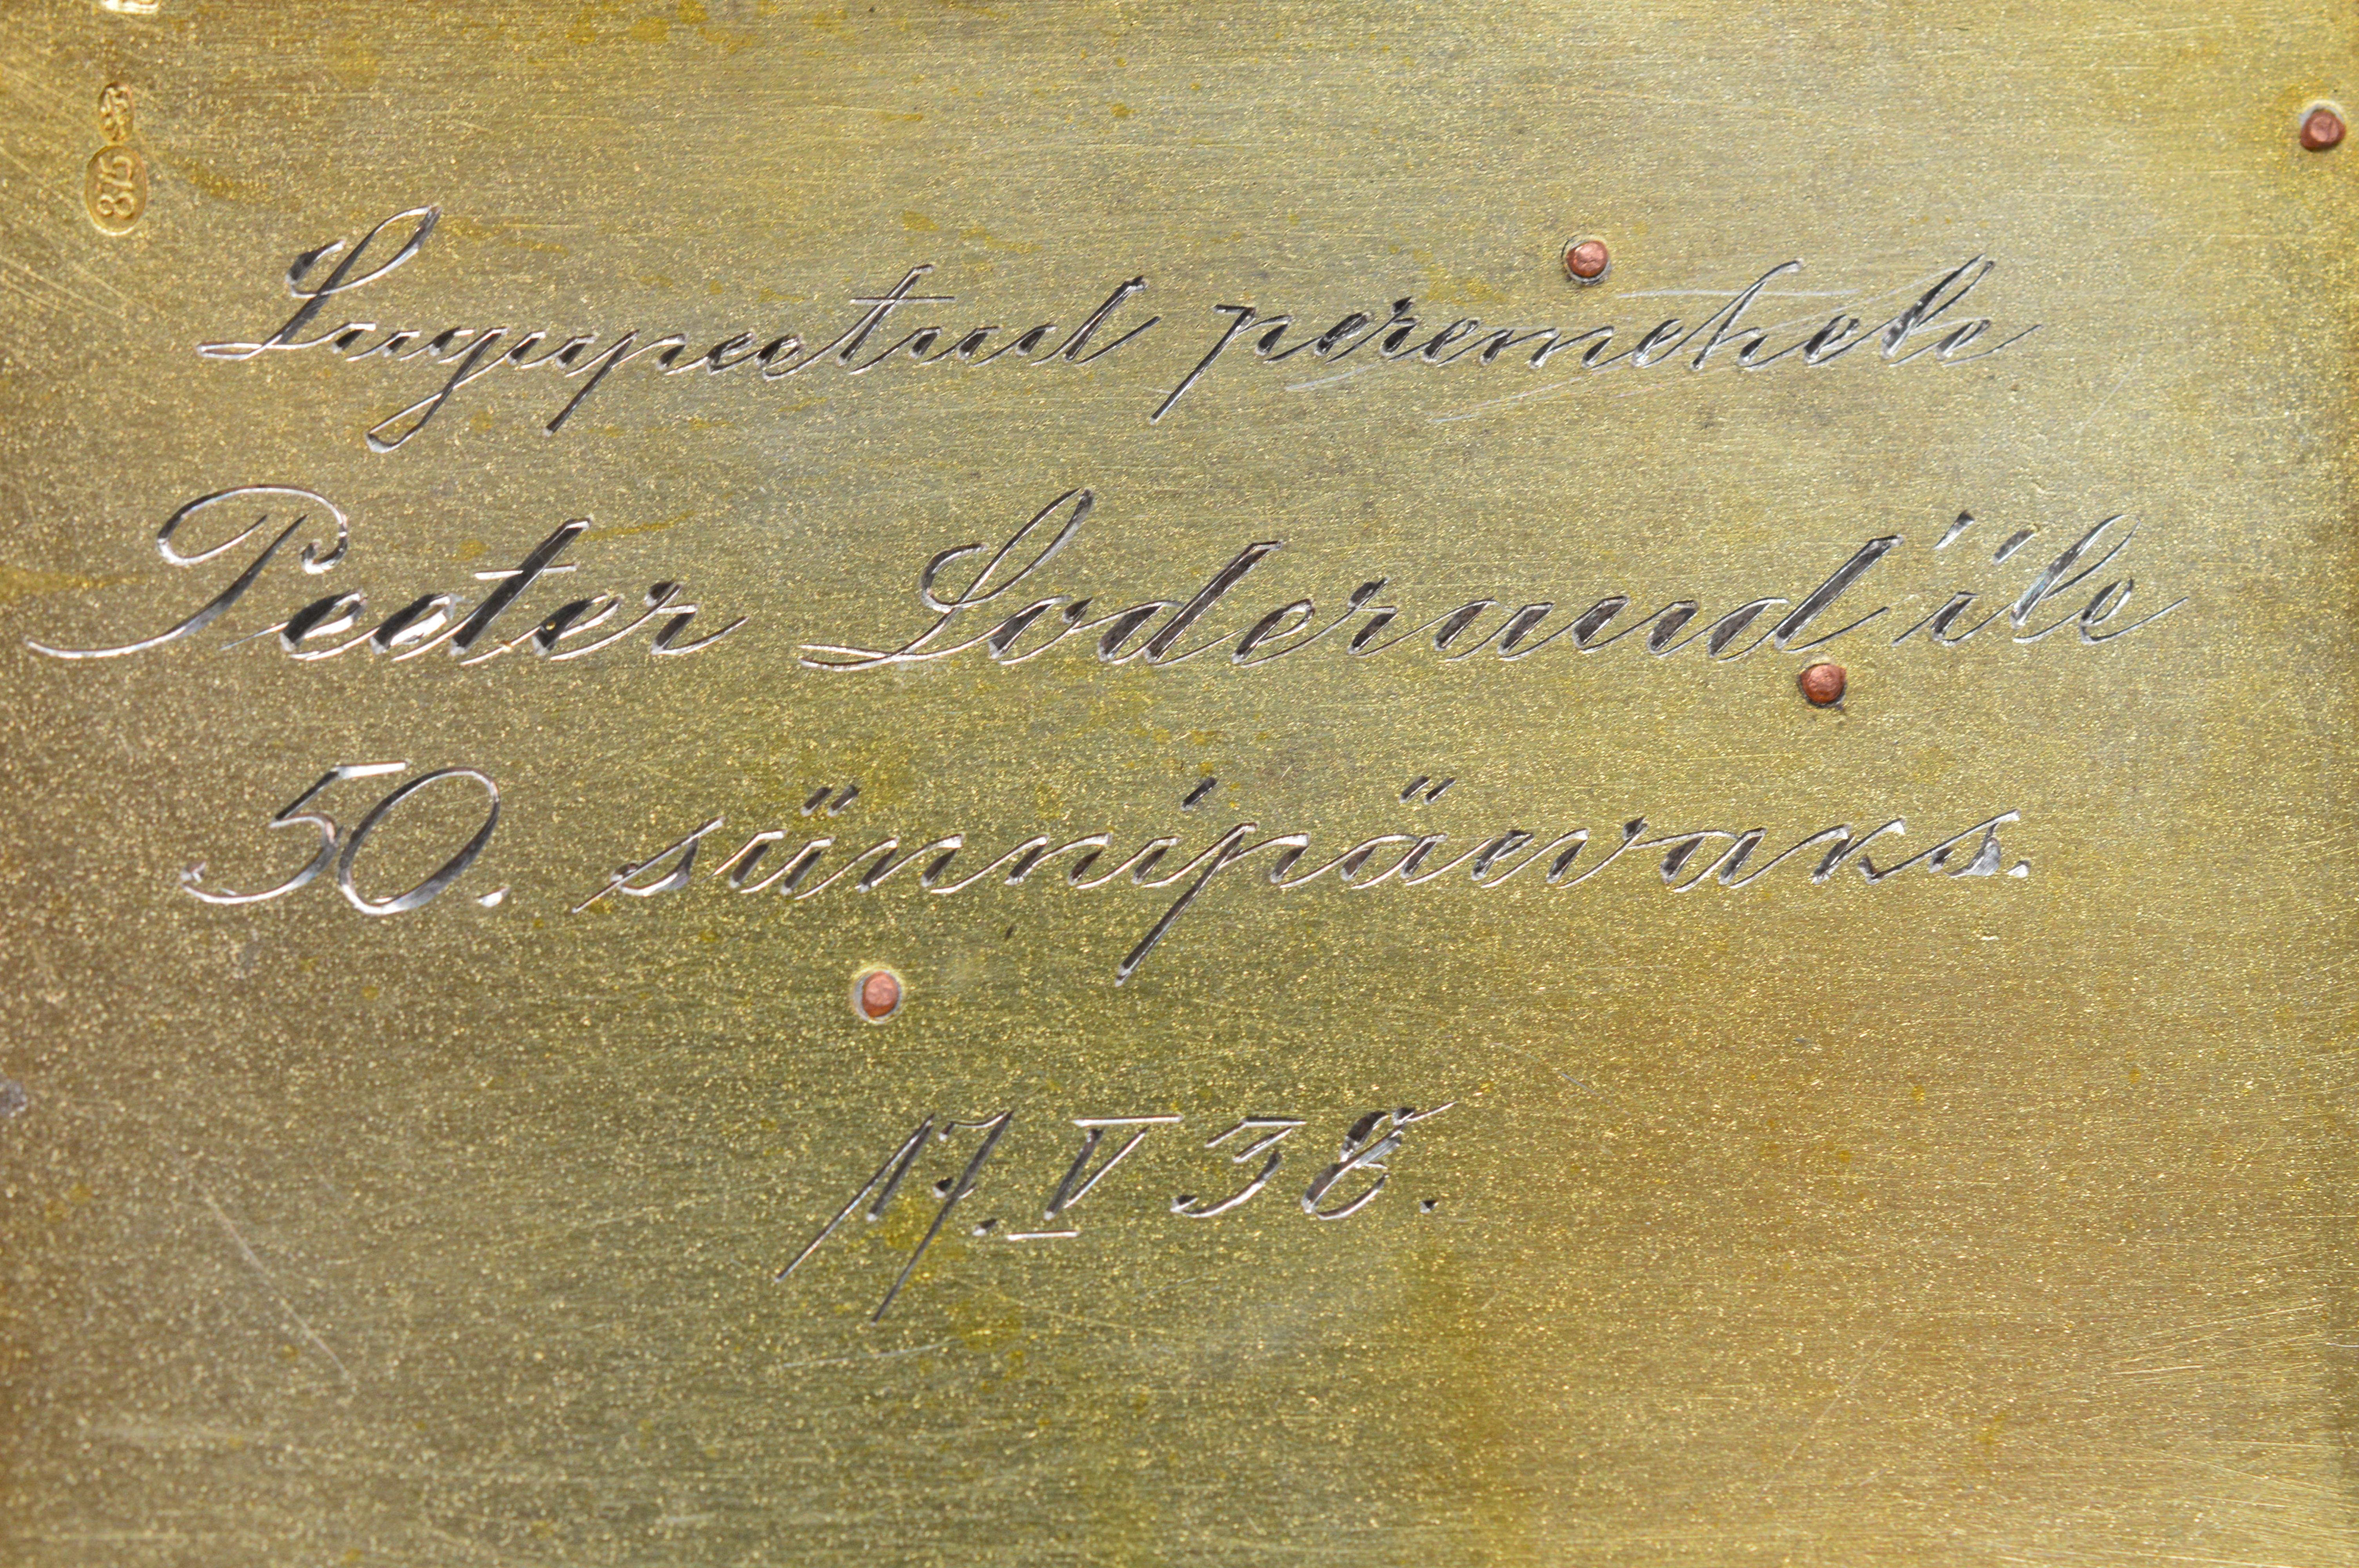 Lugupeetud peremehele
Peeter Loderaud'ile
50. sünnipäevaks.
17. V 38.